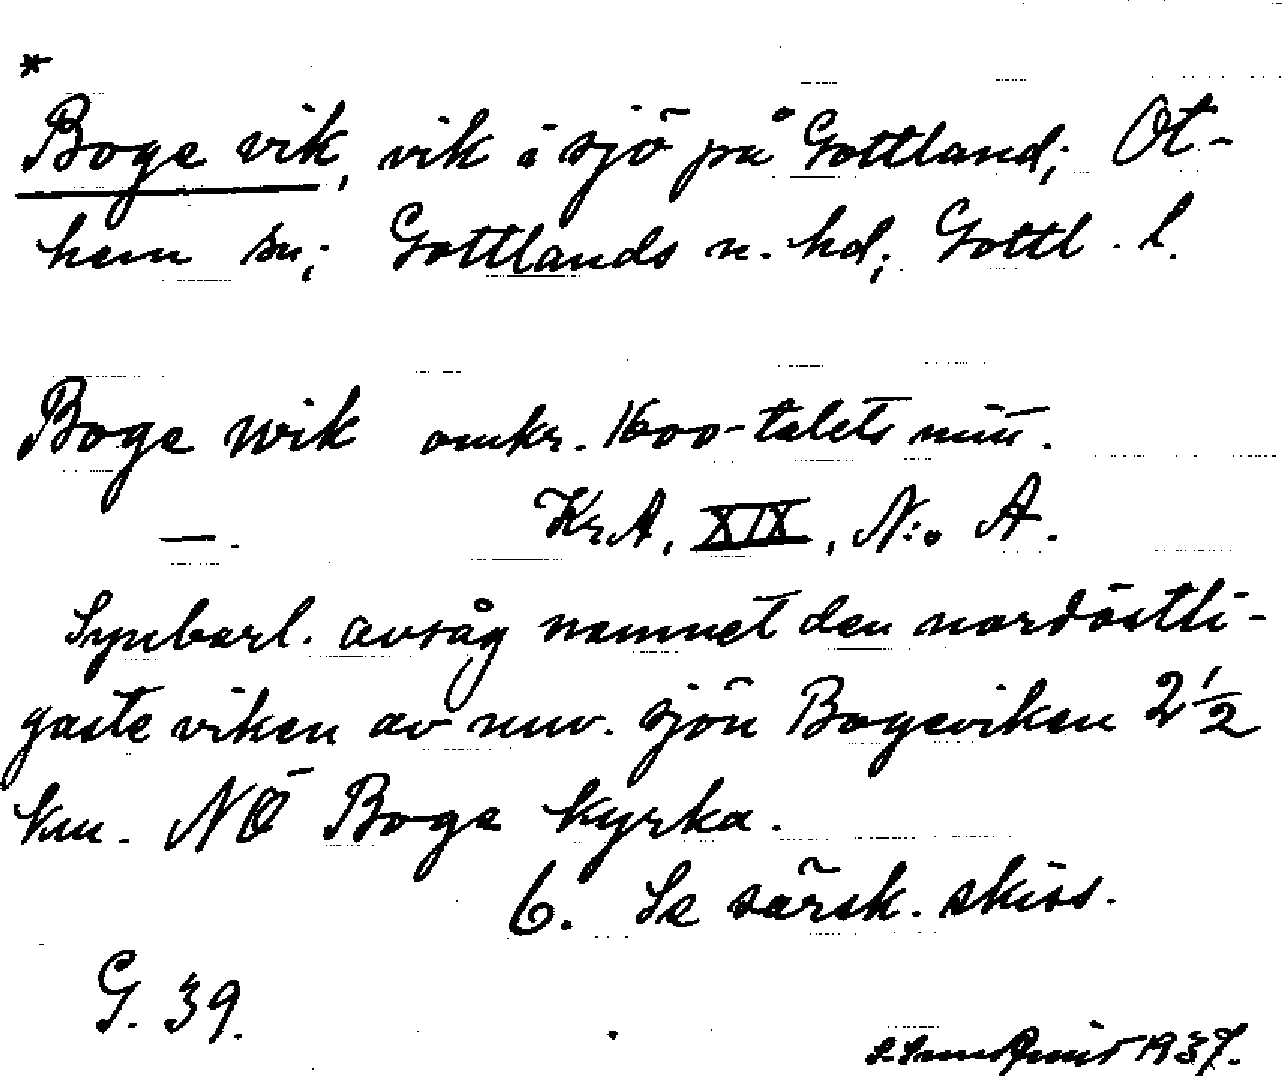 *
Boge vik, vik i sjö på Gottland; Ot-
hem sn; Gottlands n. hd; Gottl. l.
Boge wik omkr. 1600-talets mitt.
—. KrA, XIX, N:o A.
Synbarl. avsåg namnet den nordöstli-
gaste viken av nuv. sjön Bogeviken 2 1/2
km. NÖ Boge kyrka.
6. Se särsk. skiss.
G. 39.
1937.